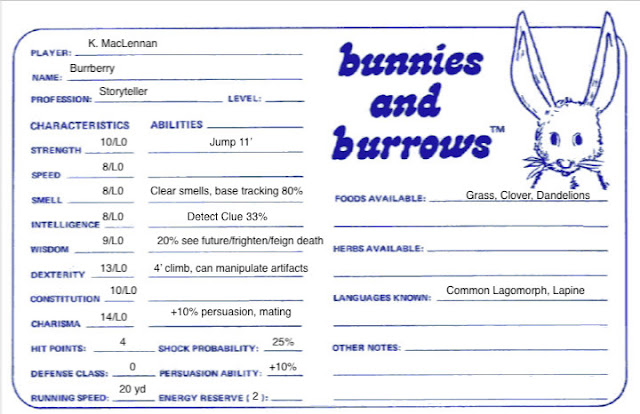 PLAYER: K. MacLennan
NAME: Burrberry
PROFESSION: Storyteller LEVEL:
CHARACTERISTICS ABILITIES
STRENGTH 10/L0 Jump 11'
SPEED 8/L0
SMELL 8/L0 Clear smells, base tracking 80%
INTELLIGENCE 8/L0 Detect Clue 33%
WISDOM 9/L0 20% see future/frighten/feign death
DEXTERITY 13/L0 4' climb, can manipulate artifacts
CONSTITUTION 10/L0
CHARISMA 14/L0 +10% persuasion, mating
HIT POINTS: 4 SHOCK PROBABILITY: 25%
DEFENSE CLASS: 0 PERSUASION ABILITY: +10%
RUNNING SPEED: 20 yd ENERGY RESERVE ( 2 ):
bunnies
and
burrows™
FOODS AVAILABLE: Grass, Clover, Dandelions
HERBS AVAILABLE:
LANGUAGES KNOWN: Common Lagomorph, Lapine
OTHER NOTES: